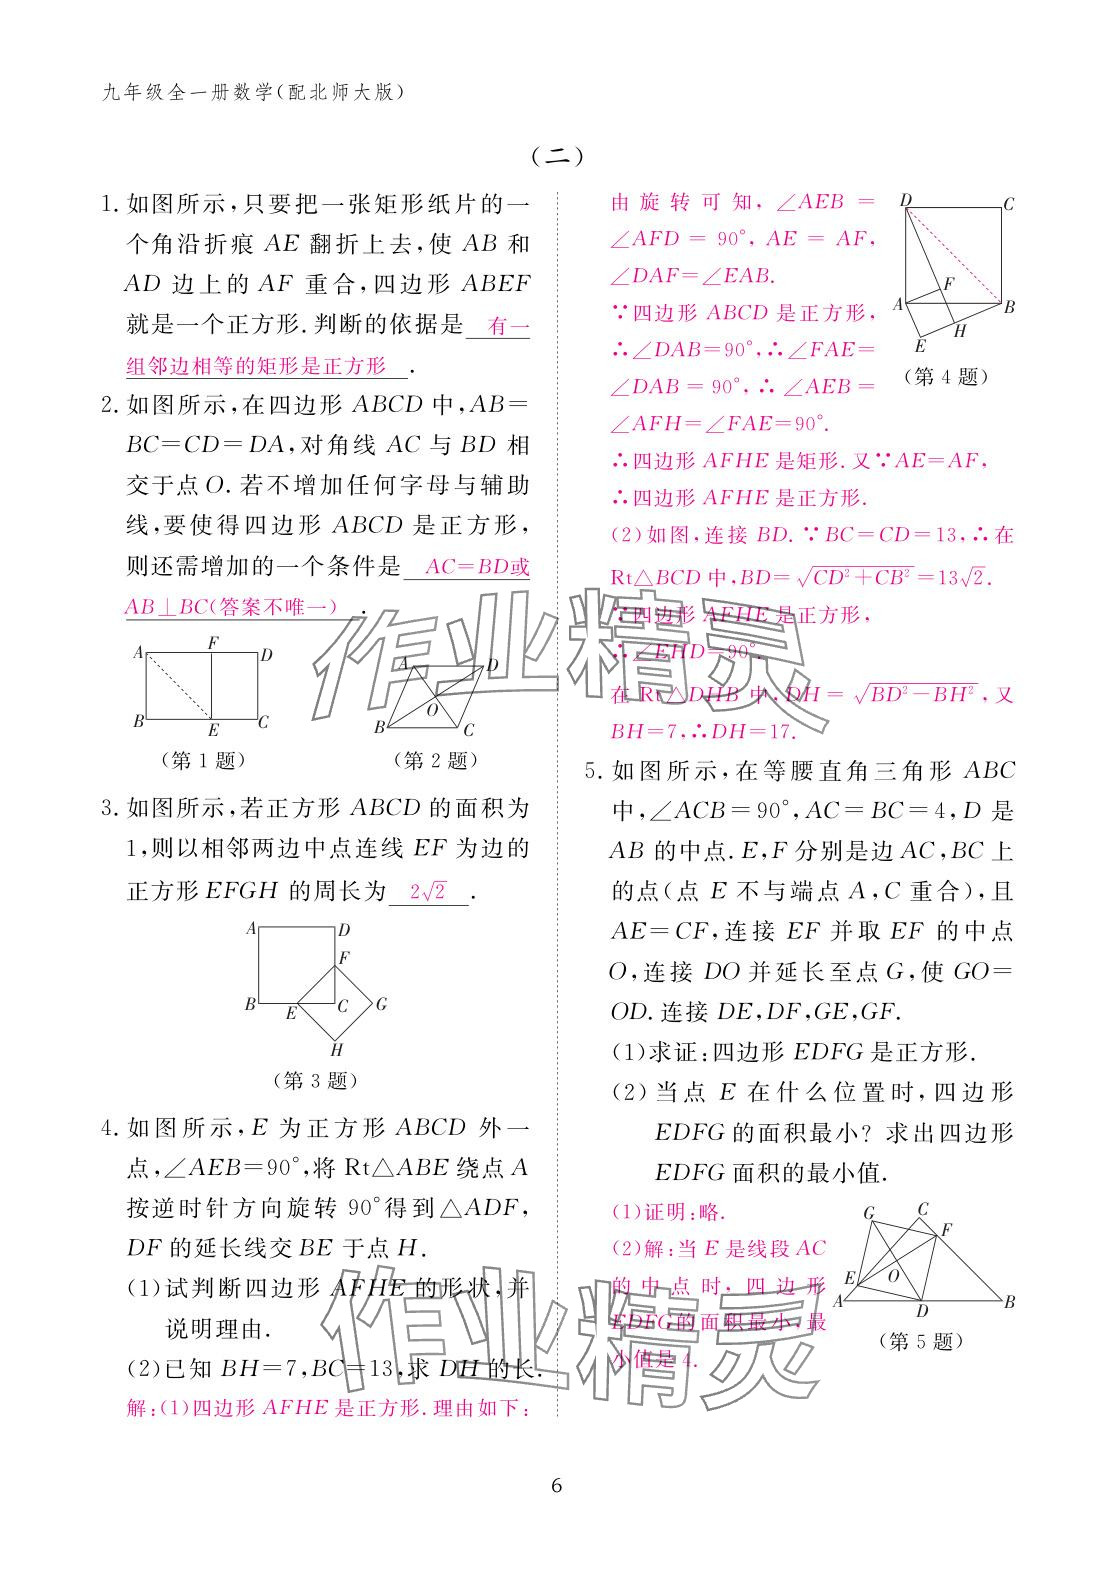 九年级全一册数学(配北师大版)
(二)
1. 如图所示,只要把一张矩形纸片的一
个角沿折痕 AE 翻折上去,使 AB 和
AD 边上的 AF 重合,四边形 ABEF
就是一个正方形.判断的依据是 有一
组邻边相等的矩形是正方形 .
2. 如图所示,在四边形 ABCD 中,AB=
BC=CD=DA,对角线 AC 与 BD 相
交于点 O. 若不增加任何字母与辅助
线,要使得四边形 ABCD 是正方形,
则还需增加的一个条件是 AC=BD或
AB⊥BC(答案不唯一) .
A F D
B E C
(第 1 题)
A D
O
B C
(第 2 题)
3. 如图所示,若正方形 ABCD 的面积为
1,则以相邻两边中点连线 EF 为边的
正方形 EFGH 的周长为 2√2 .
A D
F
B E C G
H
(第 3 题)
4. 如图所示,E 为正方形 ABCD 外一
点,∠AEB=90°,将 Rt△ABE 绕点 A
按逆时针方向旋转 90°得到△ADF,
DF 的延长线交 BE 于点 H.
(1)试判断四边形 AFHE 的形状,并
说明理由.
(2)已知 BH=7,BC=13,求 DH 的长.
解:(1)四边形 AFHE 是正方形.理由如下:
由旋转可知,∠AEB =
∠AFD = 90°, AE = AF,
∠DAF=∠EAB.
∵四边形 ABCD 是正方形,
∴∠DAB=90°,∴∠FAE=
∠DAB = 90°,∴∠AEB =
∠AFH=∠FAE=90°.
D C
F
A B
E H
(第 4 题)
∴四边形 AFHE 是矩形.又∵AE=AF,
∴四边形 AFHE 是正方形.
(2)如图,连接 BD. ∵BC=CD=13,∴在
Rt△BCD 中,BD=√(CD²+CB²)=13√2.
∵四边形 AFHE 是正方形,
∴∠EHD=90°.
在 Rt△DHB 中,DH=√(BD²-BH²),又
BH=7,∴DH=17.
5. 如图所示,在等腰直角三角形 ABC
中,∠ACB=90°,AC=BC=4,D 是
AB 的中点.E,F 分别是边 AC,BC 上
的点(点 E 不与端点 A,C 重合),且
AE=CF,连接 EF 并取 EF 的中点
O,连接 DO 并延长至点 G,使 GO=
OD.连接 DE,DF,GE,GF.
(1)求证:四边形 EDFG 是正方形.
(2)当点 E 在什么位置时,四边形
EDFG 的面积最小? 求出四边形
EDFG 面积的最小值.
(1)证明:略.
(2)解:当 E 是线段 AC
的中点时,四边形
EDFG的面积最小,最
小值是 4.
G C
F
E O
A D B
(第 5 题)
作业精灵
作业精灵
6